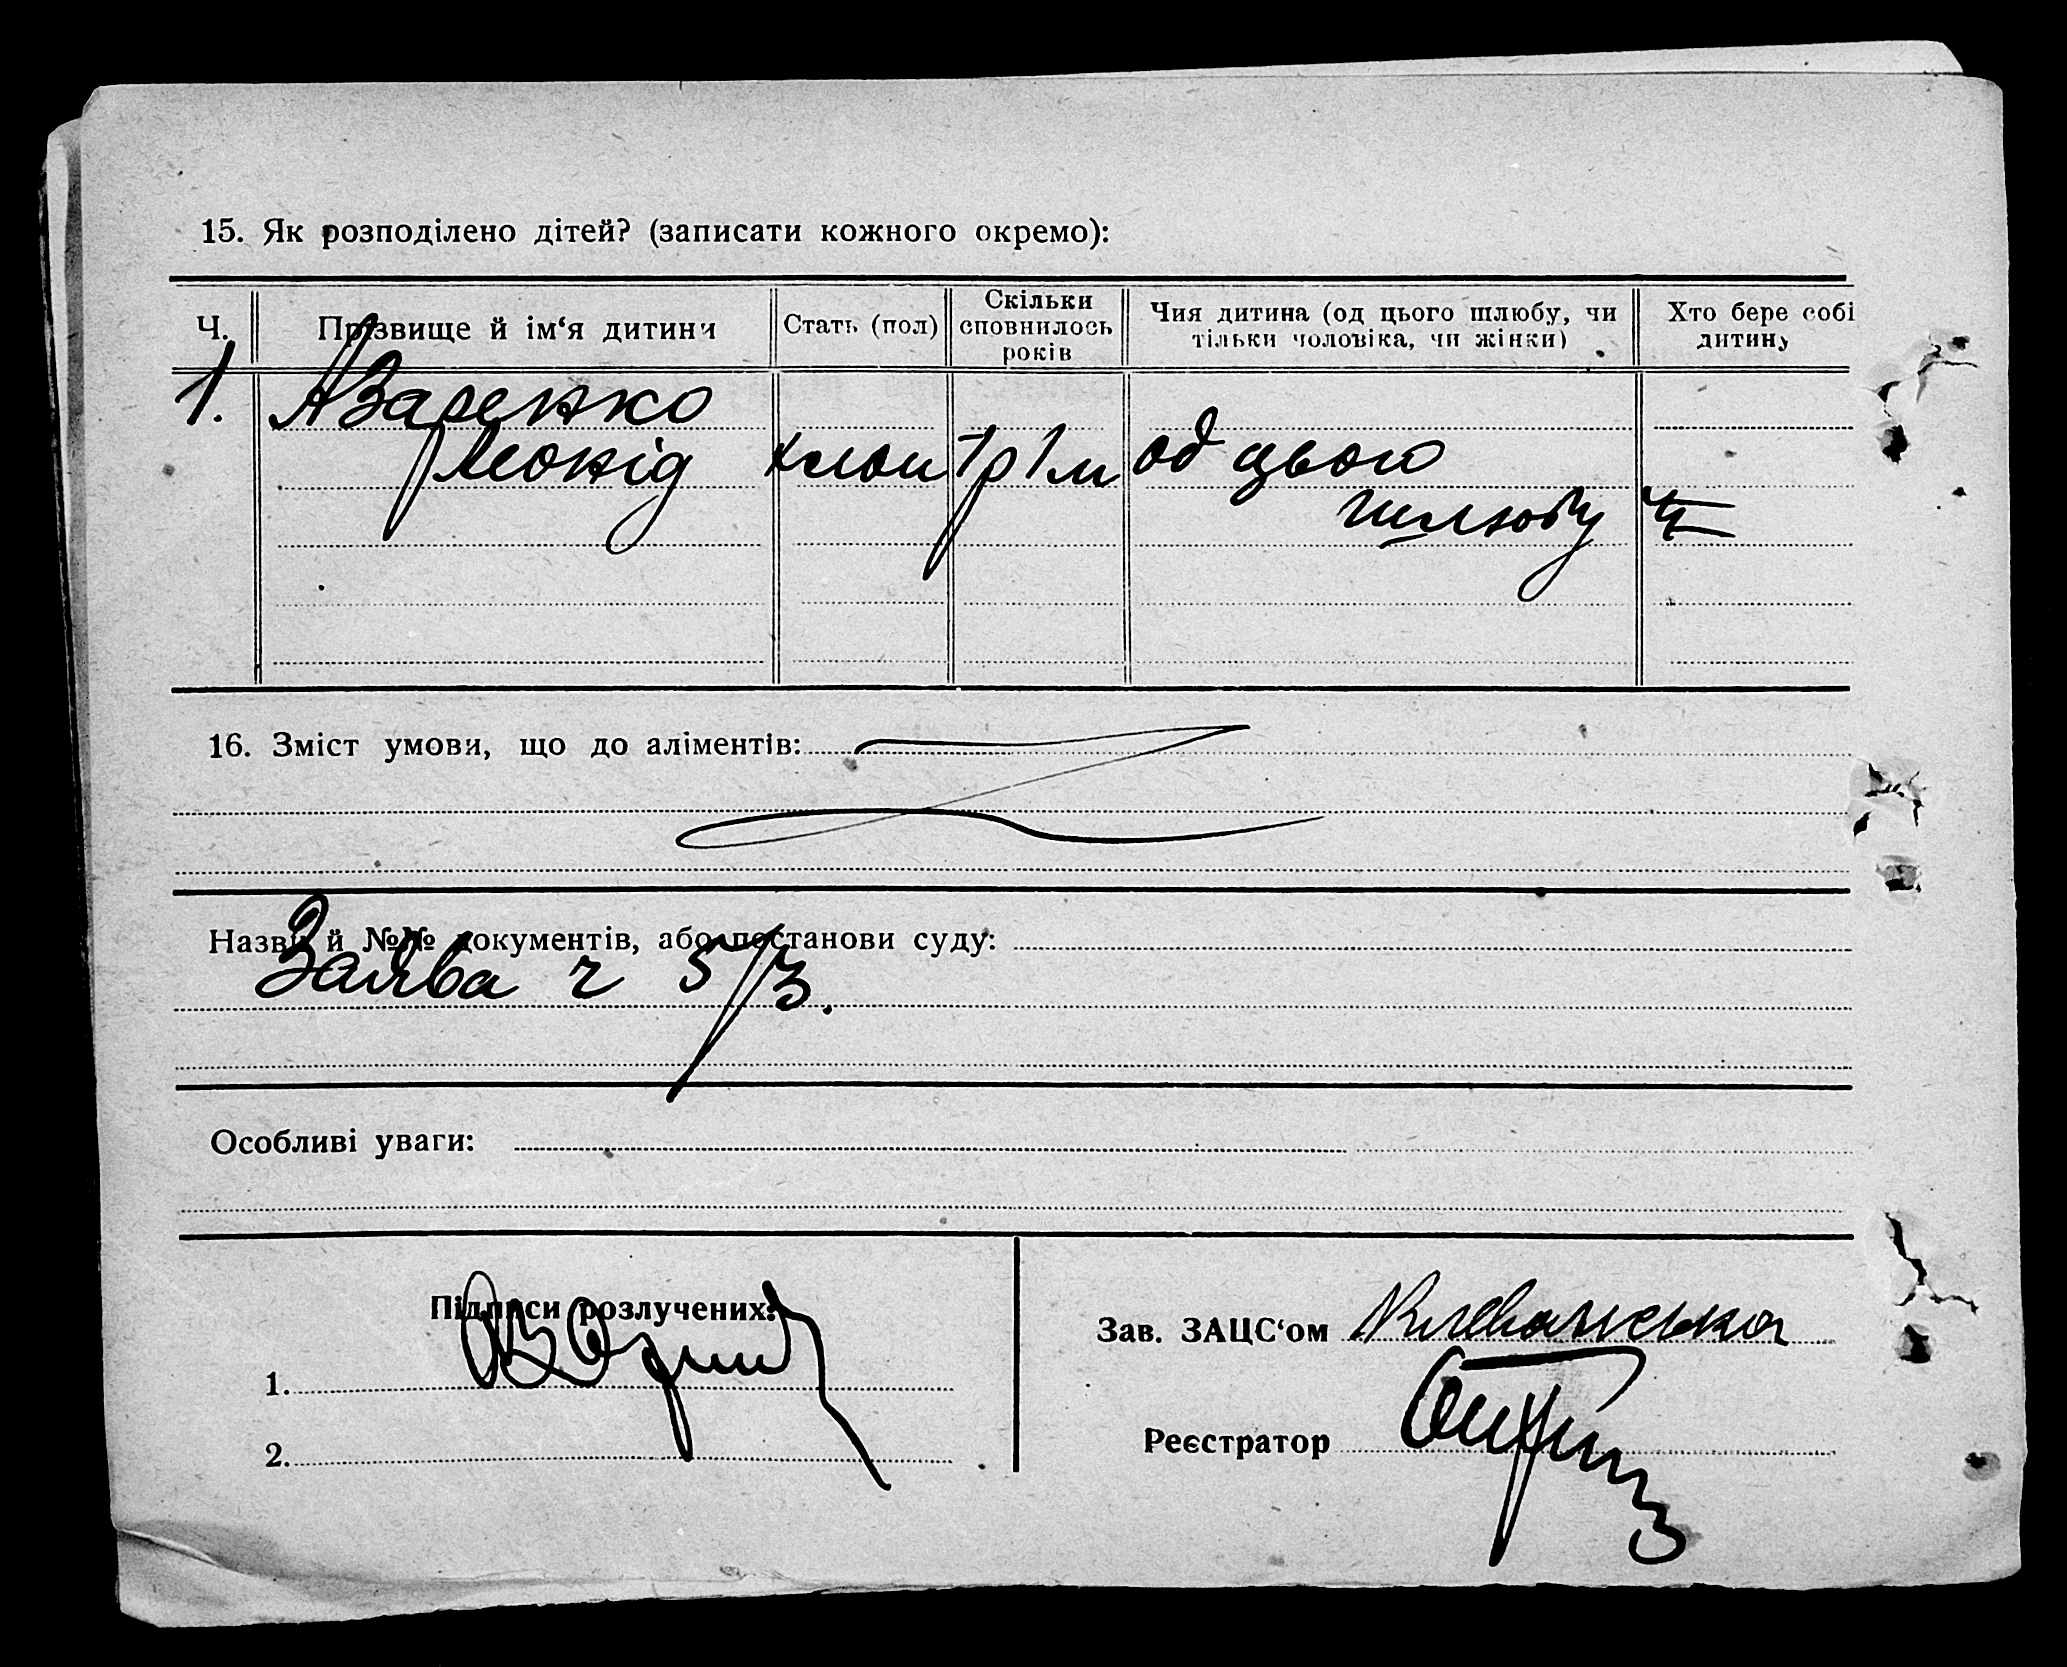 15. Як розподілено дітей? (записати кожного окремо):
Ч. Прізвище й ім‘я дитини Стать (пол) Скільки сповнилось років Чия дитина (од цього шлюбу, чи тільки чоловіка, чи жінки) Хто бере собі дитину
1. Азаренко
Леонід хлоп 1р 1м од цього
шлюбу
16. Зміст умови, що до аліментів:
Назви й №№ документів, або постанови суду:
Заява ч
Особливі уваги:
Підписи розлучених:
Зав. ЗАЦС‘ом
1.
Реєстратор
2.